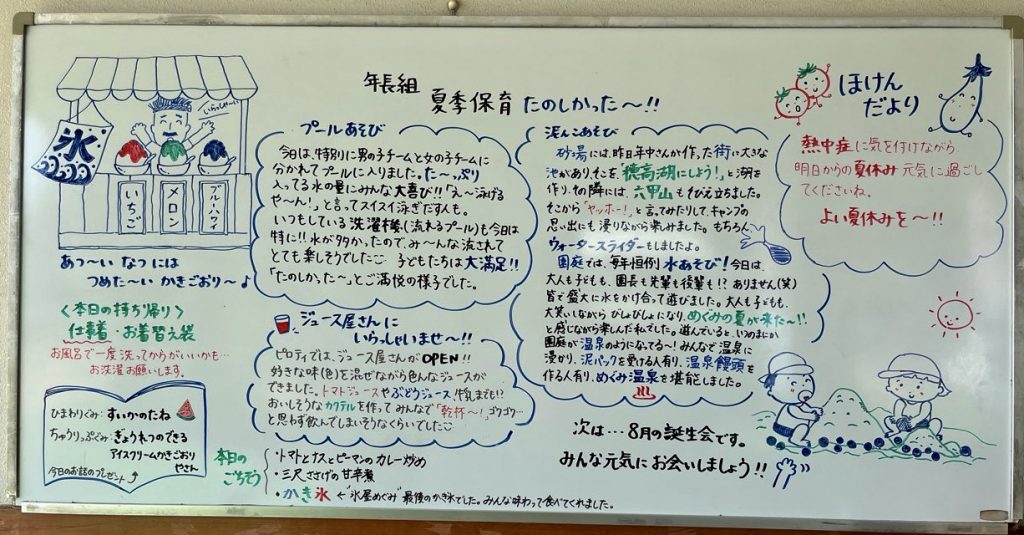 年長組
夏季保育 たのしかった〜!!
いらっしゃーい
氷
いちご
メロン
ブルーハワイ
あっ〜い なつ には
つめた〜い かきごおり〜♪
<本日の持ち帰り>
仕事着・お着替え袋
お風呂で一度洗ってからがいいかも…
お洗濯お願いします。
ひまわりぐみ:すいかのたね
ちゅうりっぷぐみ:ぎょうれつのできる
アイスクリームかきごおり
やさん
今日のお話のプレゼント
プールあそび
今日は、特別に男の子チームと女の子チームに
分かれてプールに入りました。た〜っぷり
入ってる水の量にみんな大喜び!!「え〜泳げる
や〜ん!」と言ってスイスイ泳ぎだす人も。
いつもしている洗濯機(流れるプール)も今日は
特に!!水が多かったので、み〜んな流されて
とても楽しそうでした 子どもたちは大満足!!
「たのしかった〜」とご満悦の様子でした。
ジュース屋さんに
いらっしゃいませ〜!!
ピロティでは、ジュース屋さんがOPEN!!
好きな味(色)を混ぜながら色んなジュースが
できました。トマトジュースやぶどうジュース、牛乳まで!?
おいしそうなカクテルを作って みんなで「乾杯〜!」ゴクゴク…
と思わず飲んでしまいそうなくらいでした
本日の
ごちそう
・トマトとナスとピーマンのカレー炒め
・三尺ささげの甘辛煮
・かき氷 ← "氷屋めぐみ" 最後のかき氷でした。みんな味わって食べてくれました。
泥んこあそび
砂場には、昨日年中さんが作った街に大きな
池があり、そこを「穂高湖にしよう!」と湖を
作り、その隣には、六甲山もそびえ立ちました。
そこから「ヤッホー!」と言ってみたりして、キャンプの
思い出にも浸りながら楽しみました。もちろん、
ウォータースライダーもしましたよ。
園庭では、毎年恒例 水あそび!今日は、
大人も子どもも、園長も先輩も後輩も!?ありません(笑)
皆で盛大に水をかけ合って遊びました。大人も子どもも、
大笑いしながら びしょびしょになり、めぐみの夏が来た〜!!
と感じながら楽しんだ私でした。遊んでいると、いつのまにか
園庭が温泉のようになってる〜!みんなで温泉に
浸かり、泥パックを受ける人有り、温泉饅頭を
作る人有り、めぐみ温泉を堪能しました。
次は…8月の誕生会です。
みんな元気にお会いしましょう!!
ほけん
だより
熱中症に気を付けながら
明日からの夏休み 元気に過ごし
てくださいね。
よい夏休みを〜!!